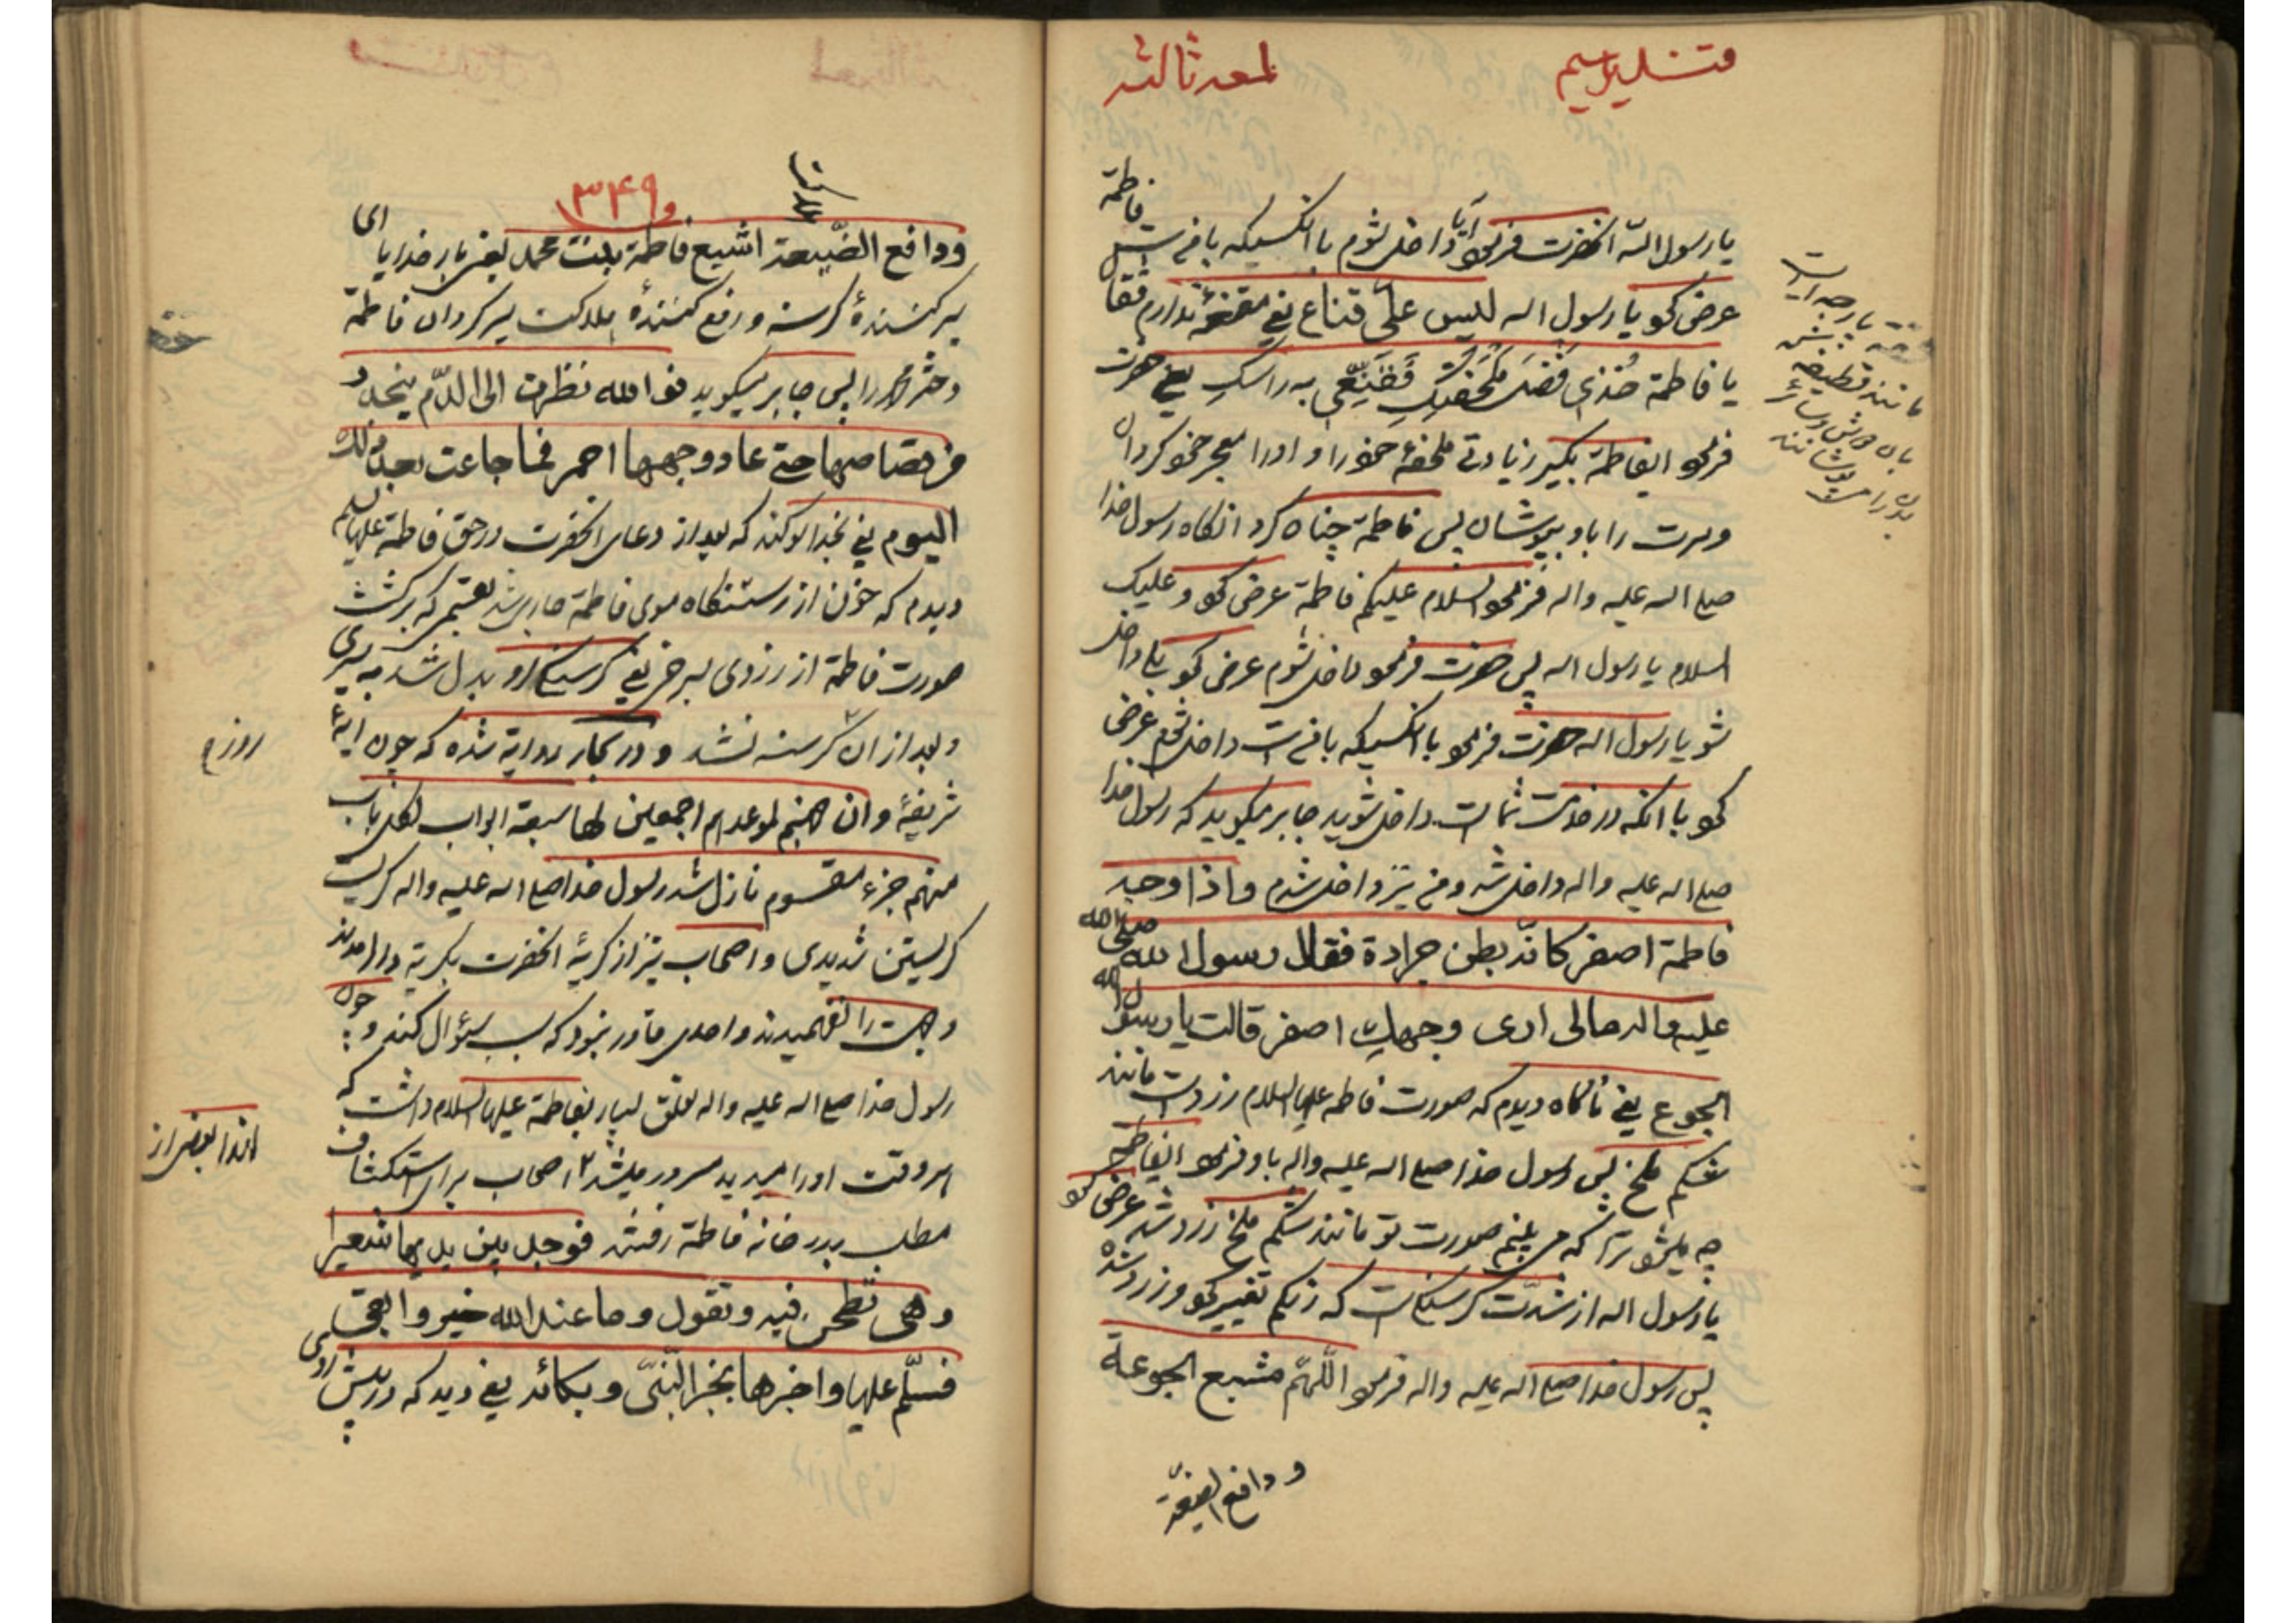 لمعه ثالثه
فاطمة
یا رسول الله انحضرت فرمود آیا داخل شوم با انکسیکه با منست
عرض کرد یا رسول اله لیس علیّ قناع یعنی مقنعه ندارم فقا
یا فاطمة خُذی فَضلَ مِلحَفَتِکِ فَقَنِّعِی به راسکِ یعنی حضرت
فرمود ایفاطمة بگیر زیادتی ملحفهٔ خود را و او را معجر خود کردان
و سرت را باو بپوشان پس فاطمة چنان کرد انکاه رسول خدا
صلی اله علیه واله فرمود السلام علیکم فاطمة عرض کرد و علیک
السلام یا رسول اله پس حضرت فرمود داخل شوم عرض کرد بلی داخل
شو یا رسول اله حضرت فرمود با انکسیکه با منست داخل شوم عرض
کرد با انکه در خدمت شماست داخل شوید جابر میکوید که رسول خدا
صلی اله علیه واله داخل شد و من نیز داخل شدم و اذا وجه
فاطمة اصفر کانّه بطن جرادة فقال رسول الله صلی الله
علیه واله مالی اری وجهکِ اصفر قالت یا رسول الله
الجوع یعنی ناکاه دیدم که صورت فاطمه علیها السلام زردست مانند
شکم ملخ پس رسول خدا صلی اله علیه واله باو فرمود ایفاطمة
چه میشود ترا که می بینم صورت تو مانند شکم ملخ زرد شده عرض کرد
یا رسول اله از شدّت کرسنکیست که رنکم تغییر کرد و زرد شده
پس رسول خدا صلی اله علیه واله فرمود اللّهمّ مشبع الجوعة
و دافع الضیعة
بارچه ایست
مانند قطیفه
۱۳۴۹
ودافع الضّیعة اشبع فاطمة بنت محمد یعنی بار خدایا ای
سیر کنندهٔ کرسنه و رفع کنندهٔ هلاکت سیر کردان فاطمة
دختر محمد را پس جابر میکوید فوالله نظرت الی الدّم ینحدر
من قصاصها حتی عاد وجهها احمر فما جاعت بعد ذلک
الیوم یعنی بخدا سوکند که بعد از دعای انحضرت در حق فاطمة علیها السلم
دیدم که خون از رستنکاه موی فاطمة جاری شد بقسمی که برکشت
صورت فاطمة از زردی بسرخی یعنی کرسنکی او بدل شد به سیری
و بعد از ان کرسنه نشد و در بحار روایة شده که چون ایهٔ
شریفهٔ وان جهنم لموعدهم اجمعین لها سبعة ابواب لکل باب
منهم جزء مقسوم نازل شد رسول خدا صلی اله علیه واله کریست
کریستن شدیدی و اصحاب نیز از کریهٔ انحضرت بکریة درامدند
و جهت را نفهمیدند و احدی قادر نبود که سبب سؤال کند و چون
رسول خدا صلی اله علیه واله تعلق بسیار بفاطمة علیها السلام داشت که
هر وقت او را میدید مسرور میشد اصحاب برای استکشاف
مطلب بدر خانه فاطمة رفتند فوجد بین یدیها شعیرا
وهی تطحن فیه و تقول وما عند الله خیر وابقی
فسلّم علیها واخبرها بخبر النّبیّ وبکائه یعنی دید که در پیش
روز
لهذا بعضی از